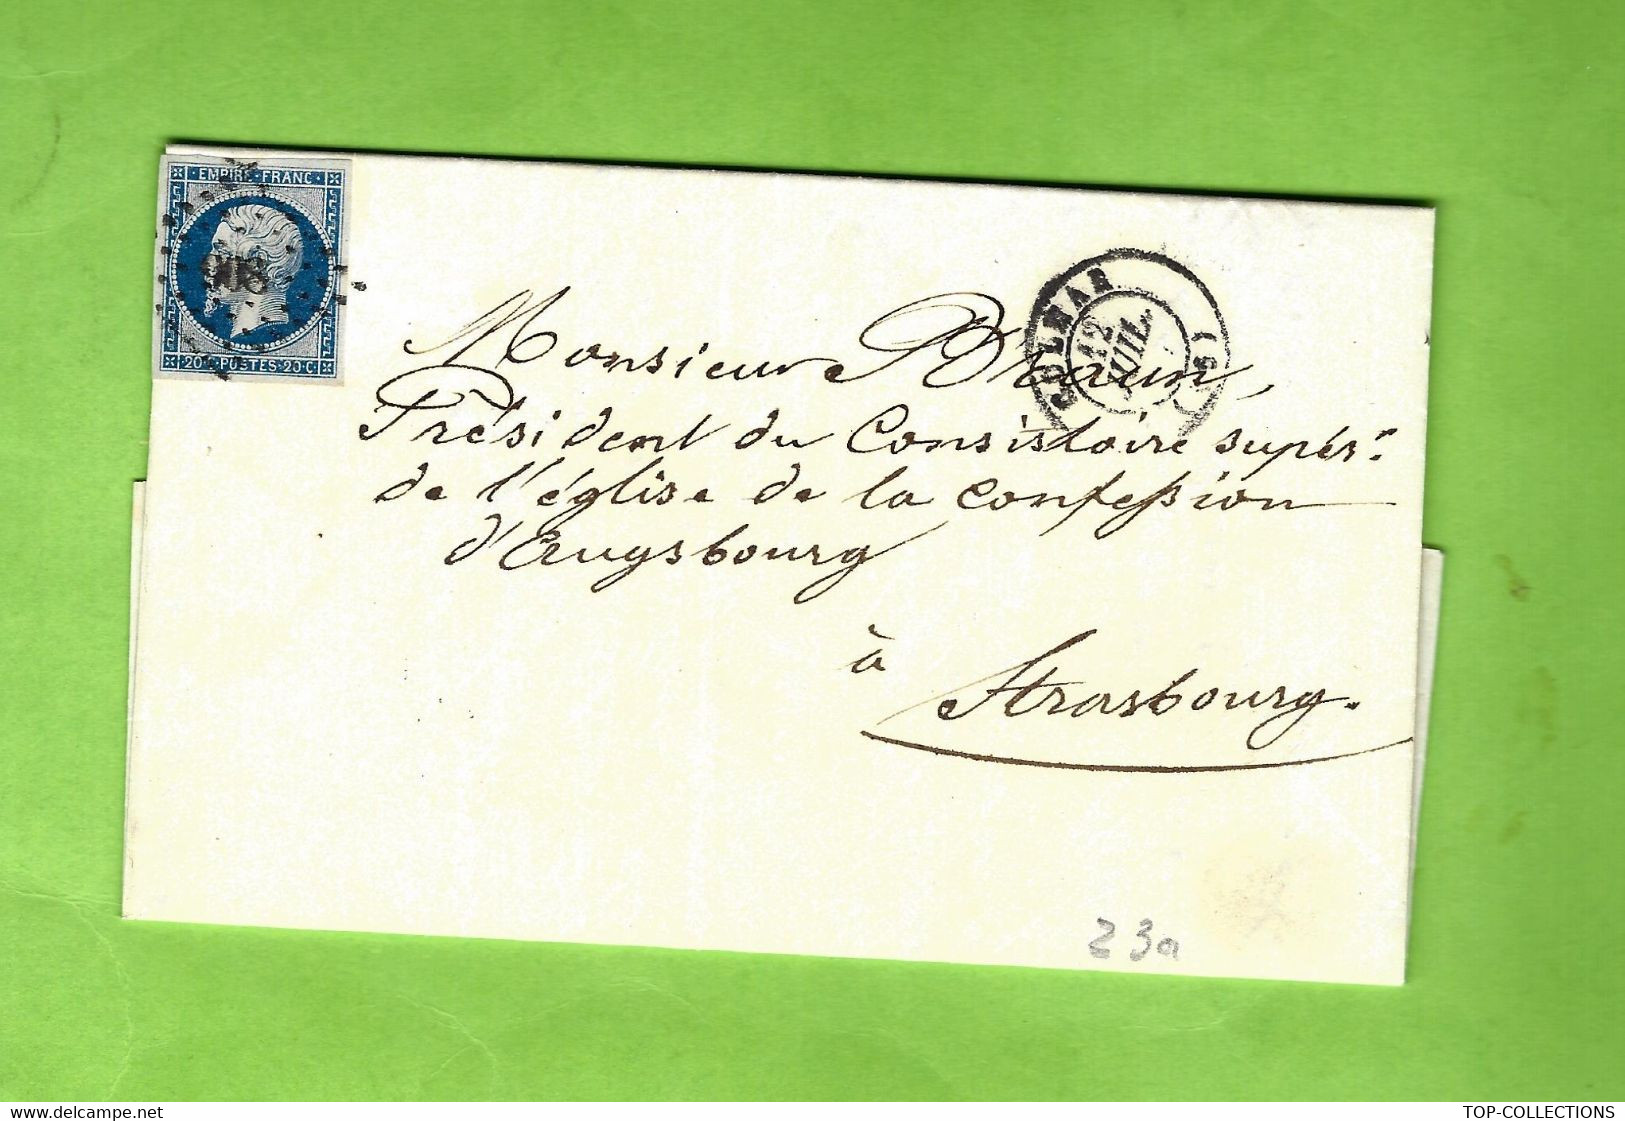 EMPIRE FRANC
908
20 C POSTES 20 C
COLMAR
12
JUIL.
Monsieur Braun,
Président du Consistoire supérr.
de l'église de la confession
d'Augsbourg
à
Strasbourg.
23a
delcampe.net
TOP-COLLECTIONS